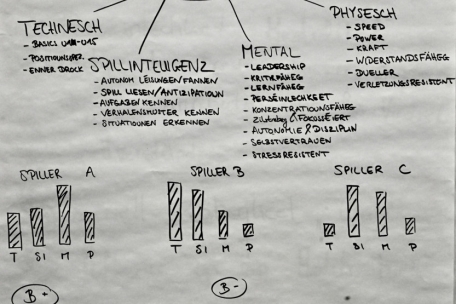 TECHNESCH
- BASICS U11-U15
- POSITIOUNSPEZ.
- ENNER DROCK
SPILLINTELLIGENZ
- AUTONOM LÉISUNGEN FANNEN
- SPILL LIESEN/ANTIZIPATIOUN
- AUFGABEN KENNEN
- VERHALENSMUSTER KENNEN
- SITUATIOUNEN ERKENNEN
MENTAL
- LEADERSHIP
- KRITIKFÄHEG
- LERNFÄHEG
- PERSÉINLECHKEET
- KONZENTRATIOUNSFÄHEG
- & FOKUSSÉIERT
- AUTONOMIE & DISZIPLIN
- SELBSTVERTRAUEN
- STRESSRESISTENT
PHYSESCH
- SPEED
- POWER
- KRAFT
- WIDERSTANDSFÄHEG
- DUELLER
- VERLETZUNGSRESISTENT
SPILLER A
T SI M P
B+
SPILLER B
T SI M P
B-
SPILLER C
T SI M P